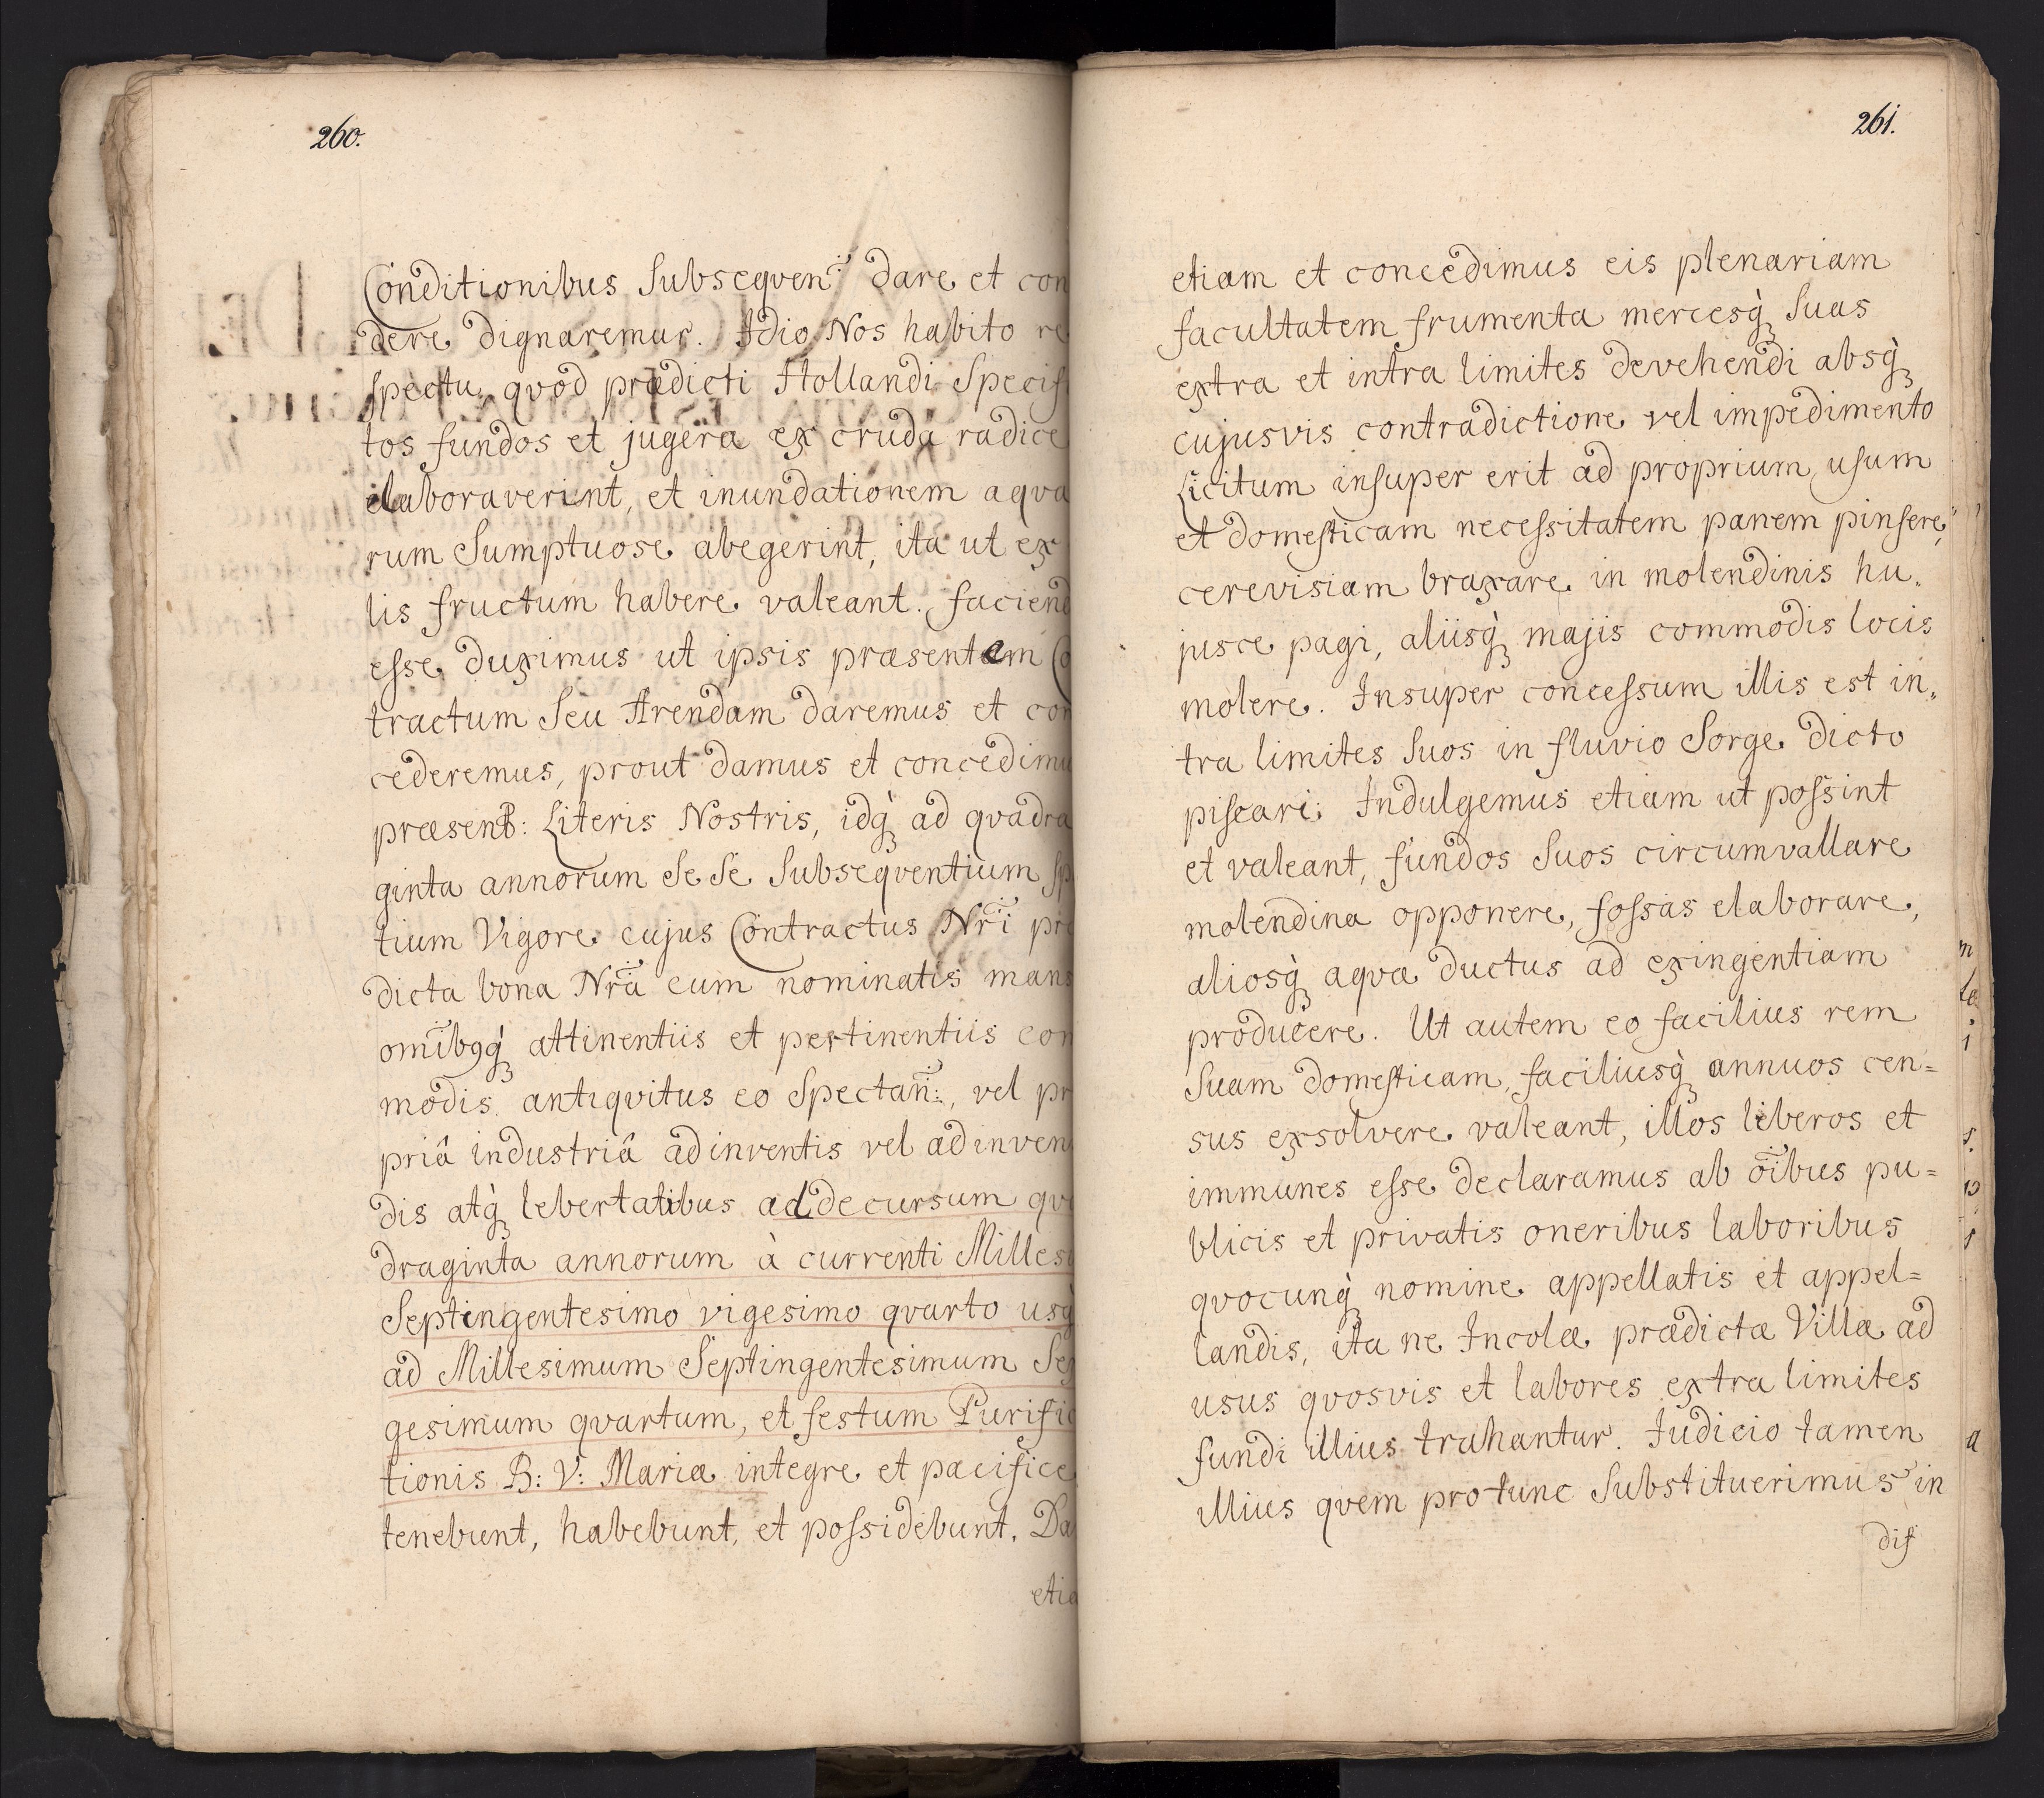 260.
Conditionibus Subseqven̄: dare et con
dere dignaremur. Idio Nos habito re
spectu, qvod prædicti Hollandi Specif
tos fundos et jugera ex cruda radice
elaboraverint, et inundationem aqva
rum Sumptuose abegerint, ita ut ex
lis fructum habere valeant. faciend
esse duximus ut ipsis præsentem Co
tractum Seu Arendam daremus et con
cederemus, prout damus et concedimu
præsent: Literis Nostris, idq̀ ad qvadra
ginta annorum Se Se Subseqventium sp
tium Vigore cujus Contractus Nr̄i pr
dicta bona Nr̄a cum nominatis mans
omībq̀ attinentiis et pertinentiis com
modis antiqvitus eo Spectan̄:, vel pr
priâ industriâ adinventis vel adinven
dis atq̀ lebertatibus ad decursum qv
draginta annorum à currenti Milles
Septingentesimo vigesimo qvarto usq̀
ad Millesimum Septingentesimum Se
gesimum qvartum, et festum Purific
tionis B: V: Mariæ integre et pacifice
tenebunt, habebunt, et possidebunt. Da
etia
261.
etiam et concedimus eis plenariam
facultatem frumenta mercesq̀ Suas
extra et intra limites devehendi absq̀
cujusvis contradictione vel impedimento
Licitum insuper erit ad proprium usum
et domesticam necessitatem panem pinsere,
cerevisiam braxare in molendinis hu„
jusce pagi, aliisq̀ majis commodis locis
molere. Insuper concessum illis est in„
tra limites Suos in fluvio Sorge dicto
piscari; Indulgemus etiam ut possint
et valeant, fundos Suos circumvallare
molendina opponere, fossas elaborare,
aliosq̀ aqvæ ductus ad exingentiam
producere. Ut autem eo facilius rem
Suam domesticam, faciliusq̀ annuos cen=
sus exsolvere valeant, illos liberos et
immunes esse declaramus ab oībus pu=
blicis et privatis oneribus laboribus
qvocunq̀ nomine appellatis et appel=
landis, ita ne Incolæ prædictæ Villæ ad
usus qvosvis et labores extra limites
fundi illius trahantur. Iudicio tamen
illius qvem protunc Substituerimus in
dis